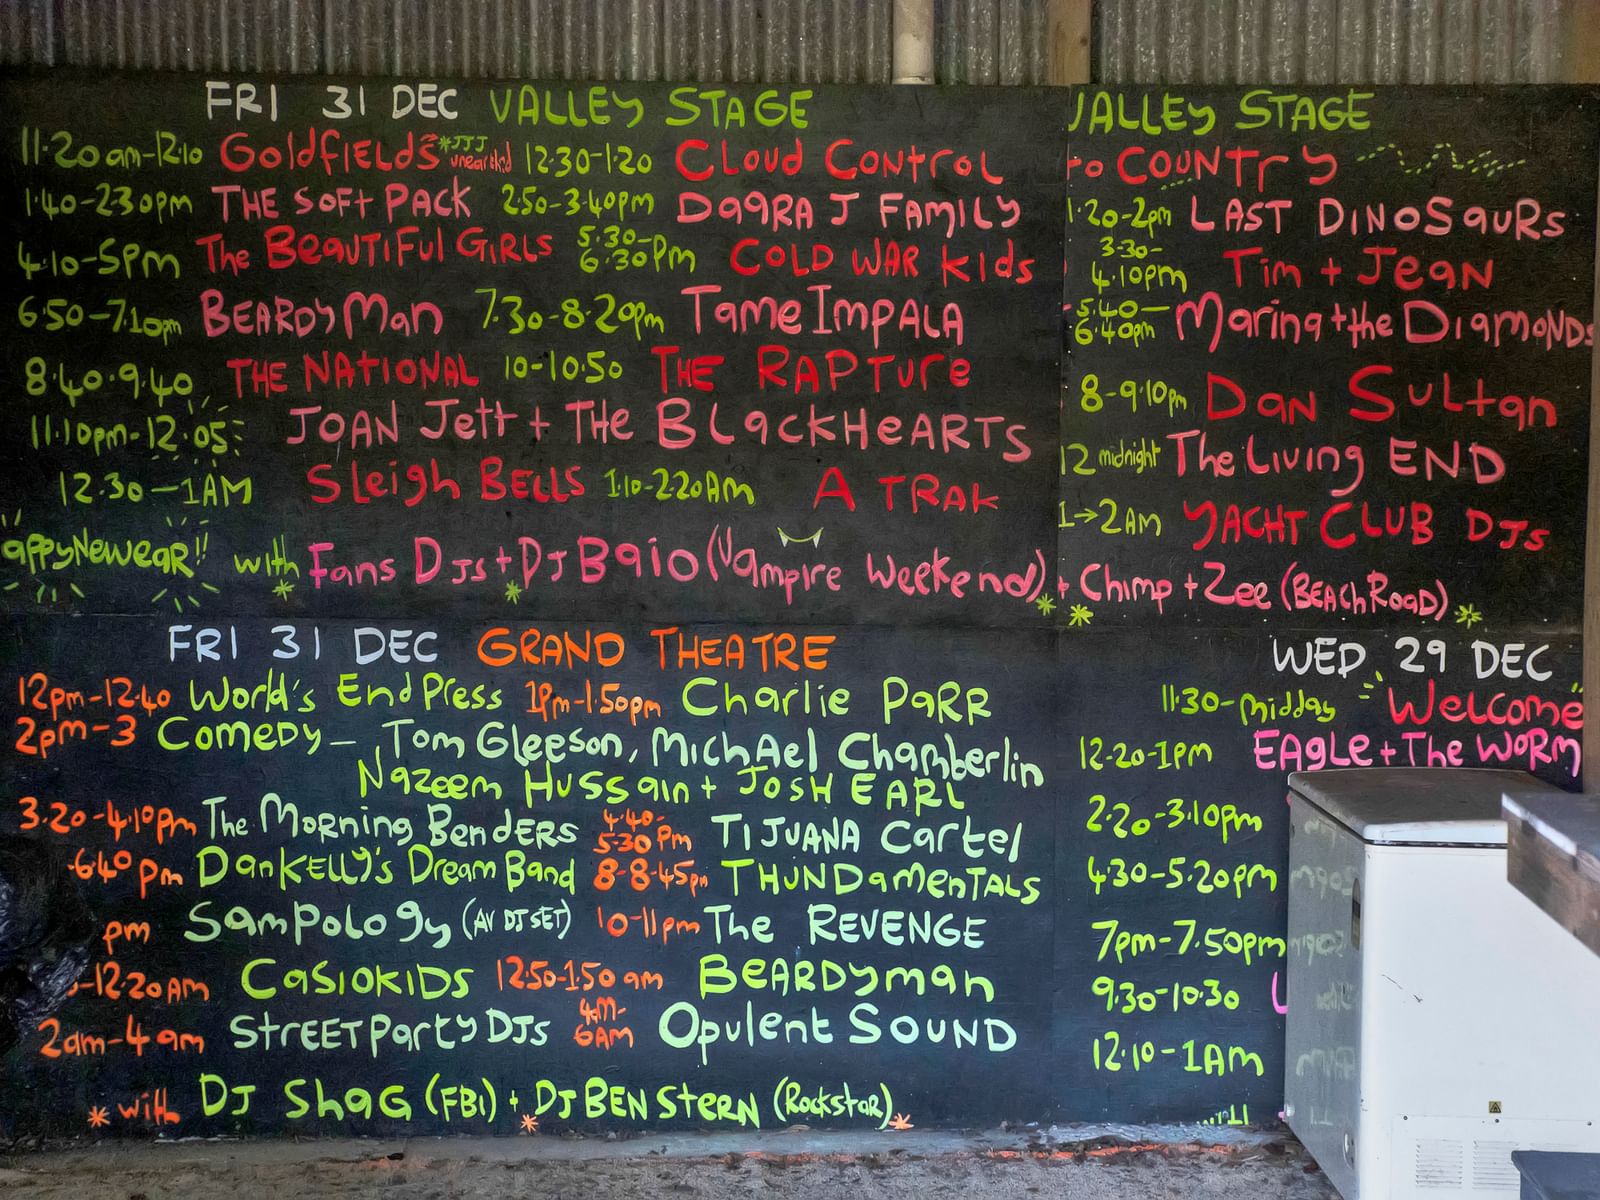 FRI 31 DEC VALLEY STAGE
11·20am-12·10 Goldfields *JJJ unearthed 12·30-1·20 Cloud Control
1·40-2·30pm THE SOFT PACK 2·50-3·40pm DaqRA J FAMILY
4·10-5pm The Beautiful Girls 5·30-6·30pm COLD WAR Kids
6·50-7·10pm BEARDyMan 7·30-8·20pm Tame Impala
8·40·9·40 THE NATIONAL 10-10·50 THE RAPTure
11·10pm-12·05 JOAN Jett + THE BLackHEARTS
12·30-1AM Sleigh BELLS 1·10-2·20AM A TRAK
appyNewyeaR!! with Fans DJs + DJ Baio (Vampire Weekend) + Chimp + Zee (BEAChRoaD)
VALLEY STAGE
to COUNTry
1·20-2pm LAST DINOSauRs
3·30-4.10pm Tim + JEAN
5.40-6·40pm Marina + the DIamoNDs
8-9·10pm Dan Sultan
12 midnight The Living END
1→2AM YACHT CLUB DJs
FRI 31 DEC GRAND THEATRE
12pm-12·40 World's End Press 1pm-1.50pm Charlie PaRR
2pm-3 Comedy - Tom Gleeson, Michael Chamberlin
Nazeem Hussain + JOSH EARL
3.20-4·10pm The Morning BenDERS 4·40-5·30pm TIJUANA Cartel
-6·40pm Dan KELLy's Dream Band 8-8·45pm THUNDamenTALS
pm Sampology (AV DJ SET) 10-11pm The REVENGE
-12·20AM CasioKIDS 12·50-1·50am BEARDyman
2am-4am StREET Party DJs 4am-6AM Opulent SOUND
* with DJ ShaG (FBI) + DJ BEN StERN (Rockstar)
WED 29 DEC
11·30-midday "Welcome"
12·20-1pm EAgle + The WoRm
2·20-3·10pm
4·30-5·20pm
7pm-7.50pm
9·30-10·30
12·10-1AM